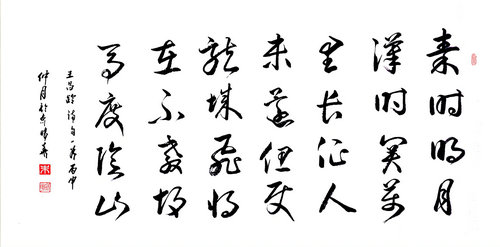 秦時明月
漢時關萬
里長征人
未還但使
龍城飛將
在不教胡
馬度陰山
王昌齡詩一首丙申
仲月於